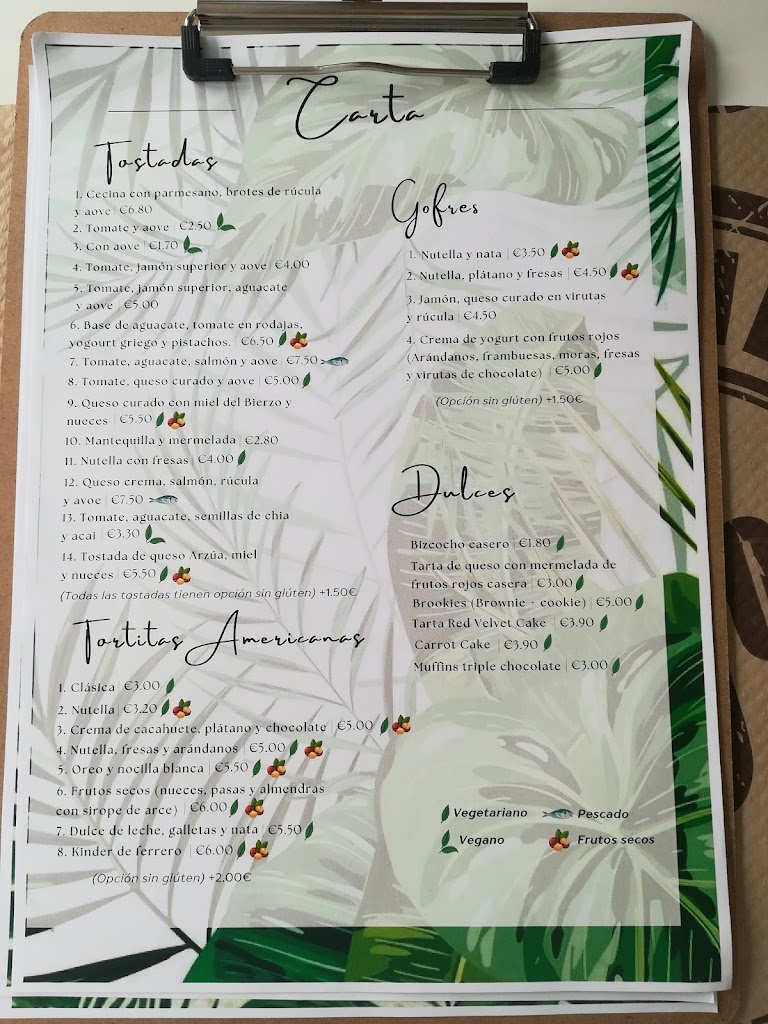 Carta
Tostadas
1. Cecina con parmesano, brotes de rúcula
y aove | €6.80
2. Tomate y aove | €2.50
3. Con aove | €1.70
4. Tomate, jamón superior y aove | €4.00
5. Tomate, jamón superior, aguacate
y aove | €5.00
6. Base de aguacate, tomate en rodajas,
yogourt griego y pistachos. | €6.50
7. Tomate, aguacate, salmón y aove | €7.50
8. Tomate, queso curado y aove | €5.00
9. Queso curado con miel del Bierzo y
nueces | €5.50
10. Mantequilla y mermelada | €2.80
11. Nutella con fresas | €4.00
12. Queso crema, salmón, rúcula
y avoe | €7.50
13. Tomate, aguacate, semillas de chia
y acai | €3.30
14. Tostada de queso Arzúa, miel
y nueces | €5.50
(Todas las tostadas tienen opción sin glúten) +1.50€
Tortitas Americanas
1. Clásica | €3.00
2. Nutella | €3.20
3. Crema de cacahuete, plátano y chocolate | €5.00
4. Nutella, fresas y arándanos | €5.00
5. Oreo y nocilla blanca | €5.50
6. Frutos secos (nueces, pasas y almendras
con sirope de arce) | €6.00
7. Dulce de leche, galletas y nata | €5.50
8. Kinder de ferrero | €6.00
(Opción sin glúten) +2.00€
Gofres
1. Nutella y nata | €3.50
2. Nutella, plátano y fresas | €4.50
3. Jamón, queso curado en virutas
y rúcula | €4.50
4. Crema de yogurt con frutos rojos
(Arándanos, frambuesas, moras, fresas
y virutas de chocolate) | €5.00
(Opción sin glúten) +1.50€
Dulces
Bizcocho casero | €1.80
Tarta de queso con mermelada de
frutos rojos casera | €3.00
Brookies (Brownie + cookie) | €5.00
Tarta Red Velvet Cake | €3.90
Carrot Cake | €3.90
Muffins triple chocolate | €3.00
Vegetariano Pescado
Vegano Frutos secos